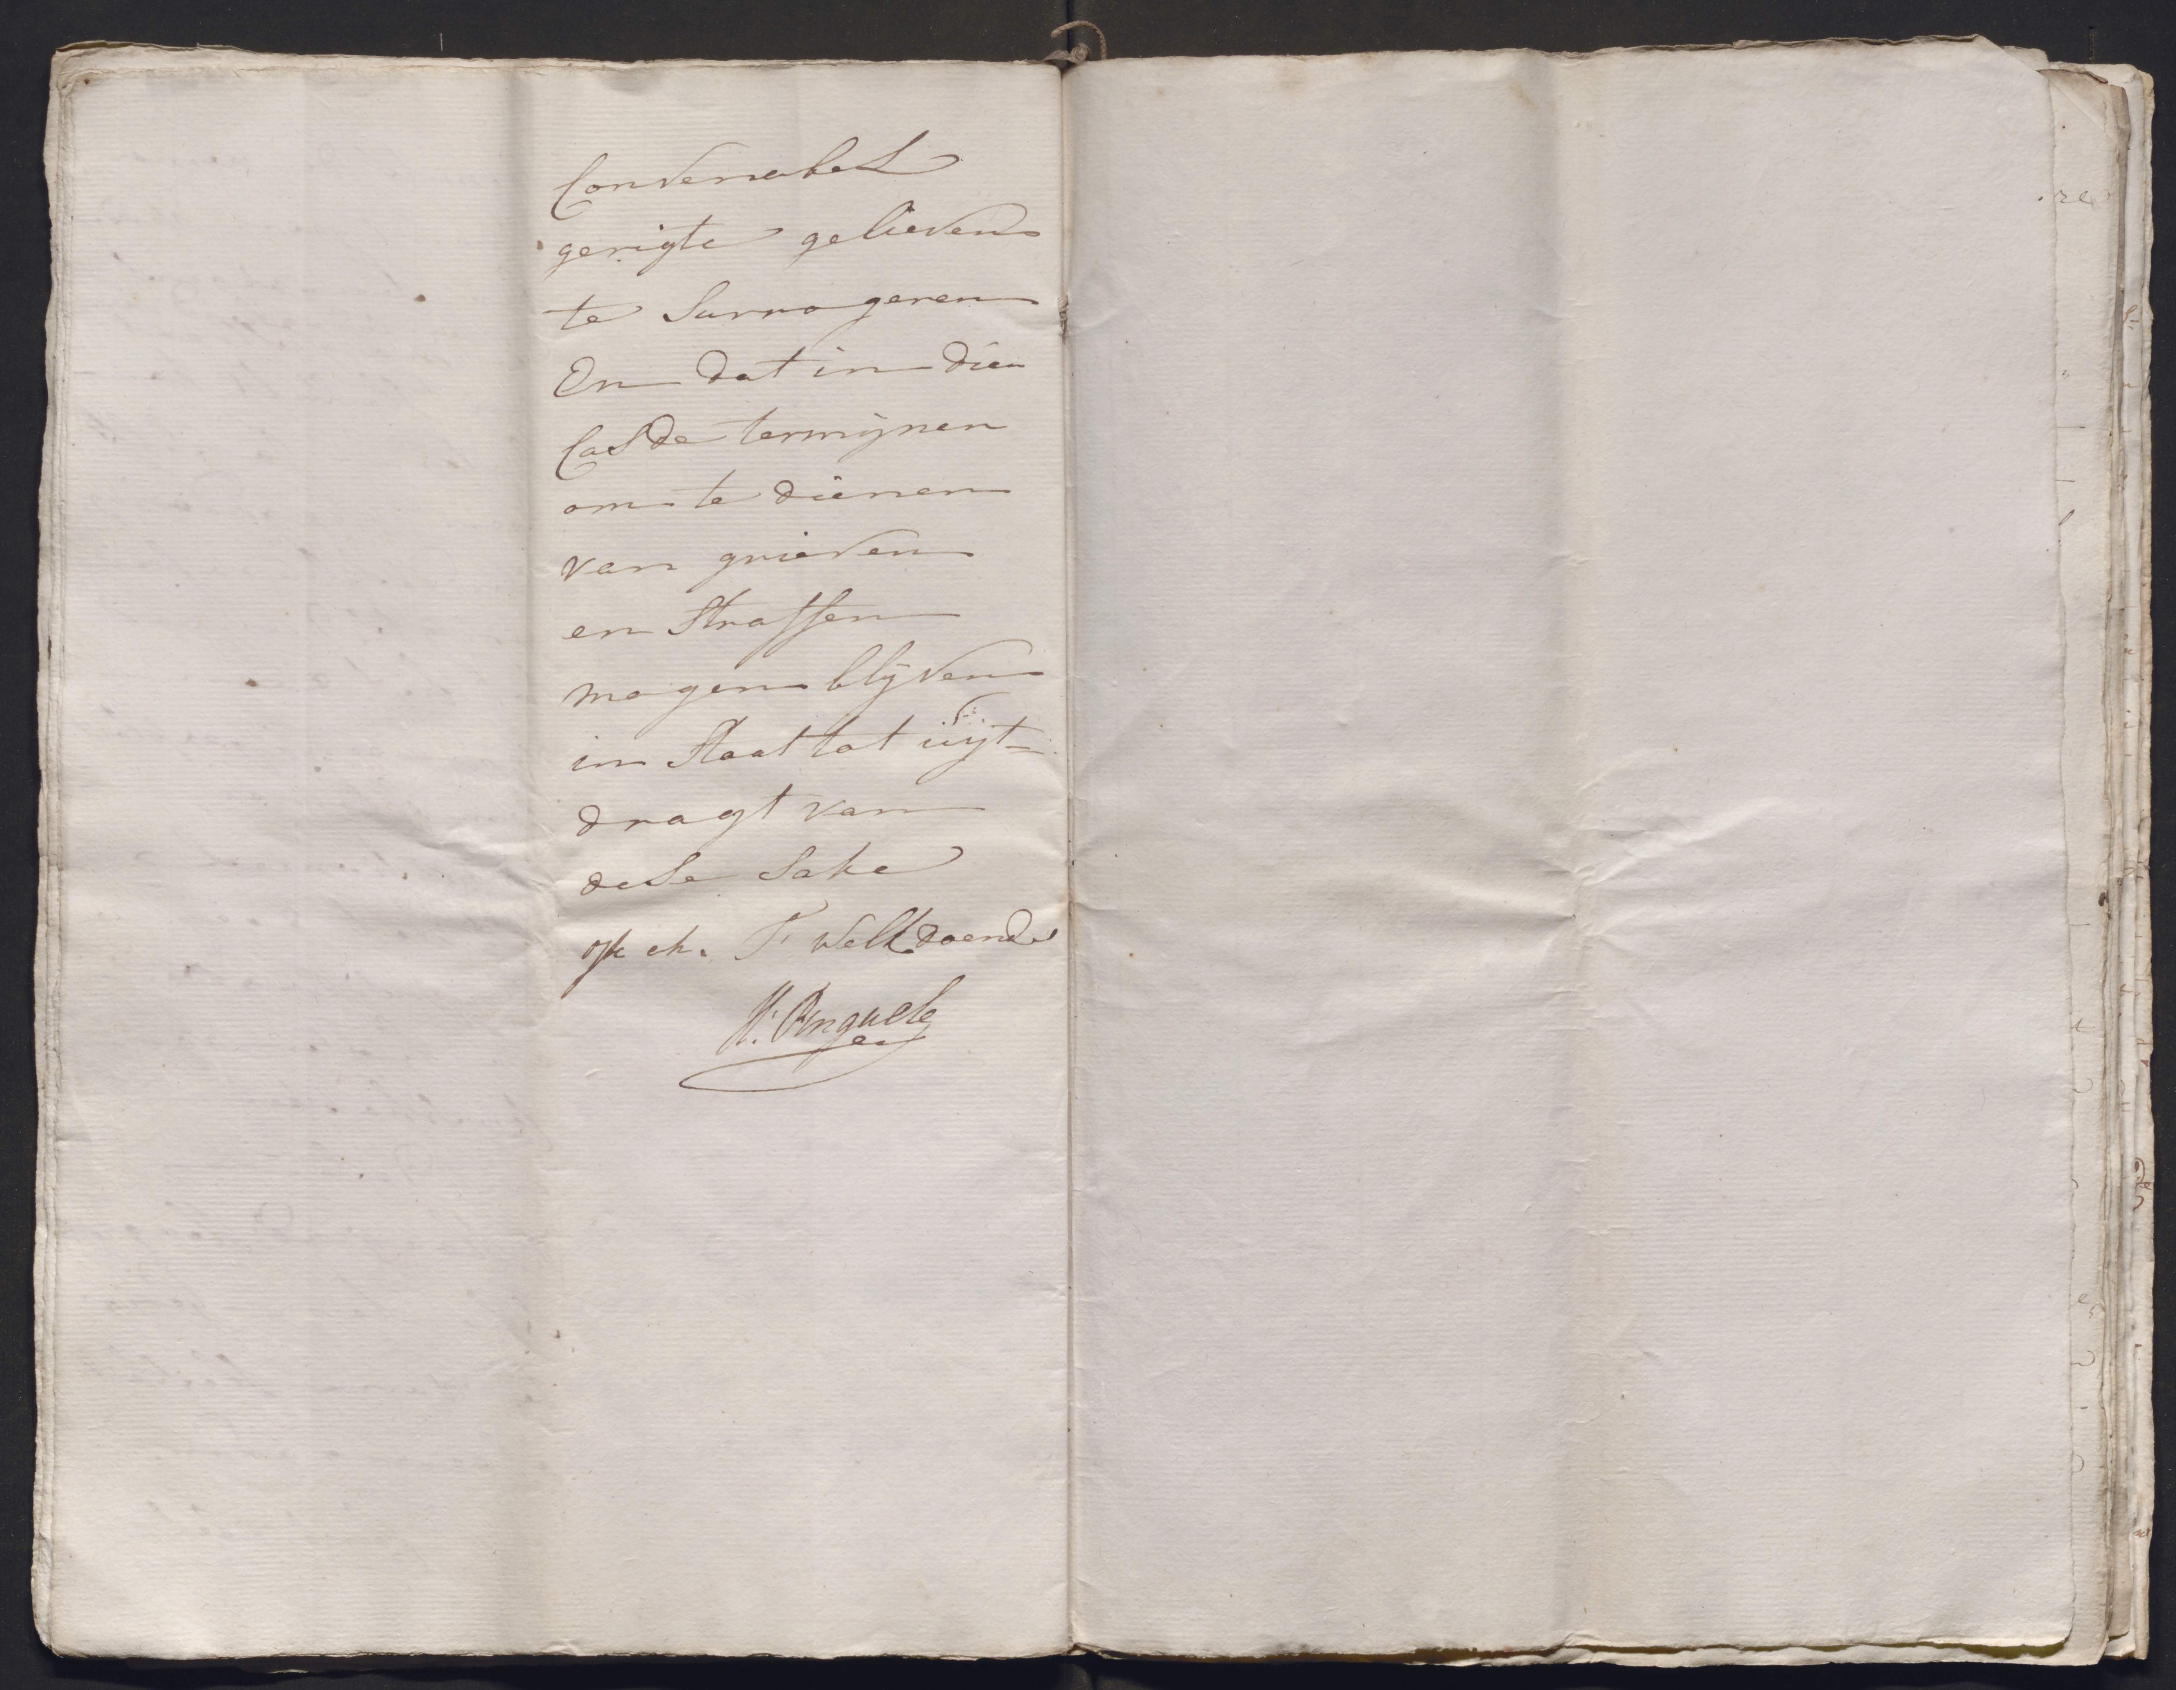 Convenabel
gerigte gelieven
te Surrogeren
En dat in dien
Cas de termynen
om te dienen
van grieven
en Straffen
mogen blyven
in Staat tot uyt-
dragt van
dese Sake
T welk doende